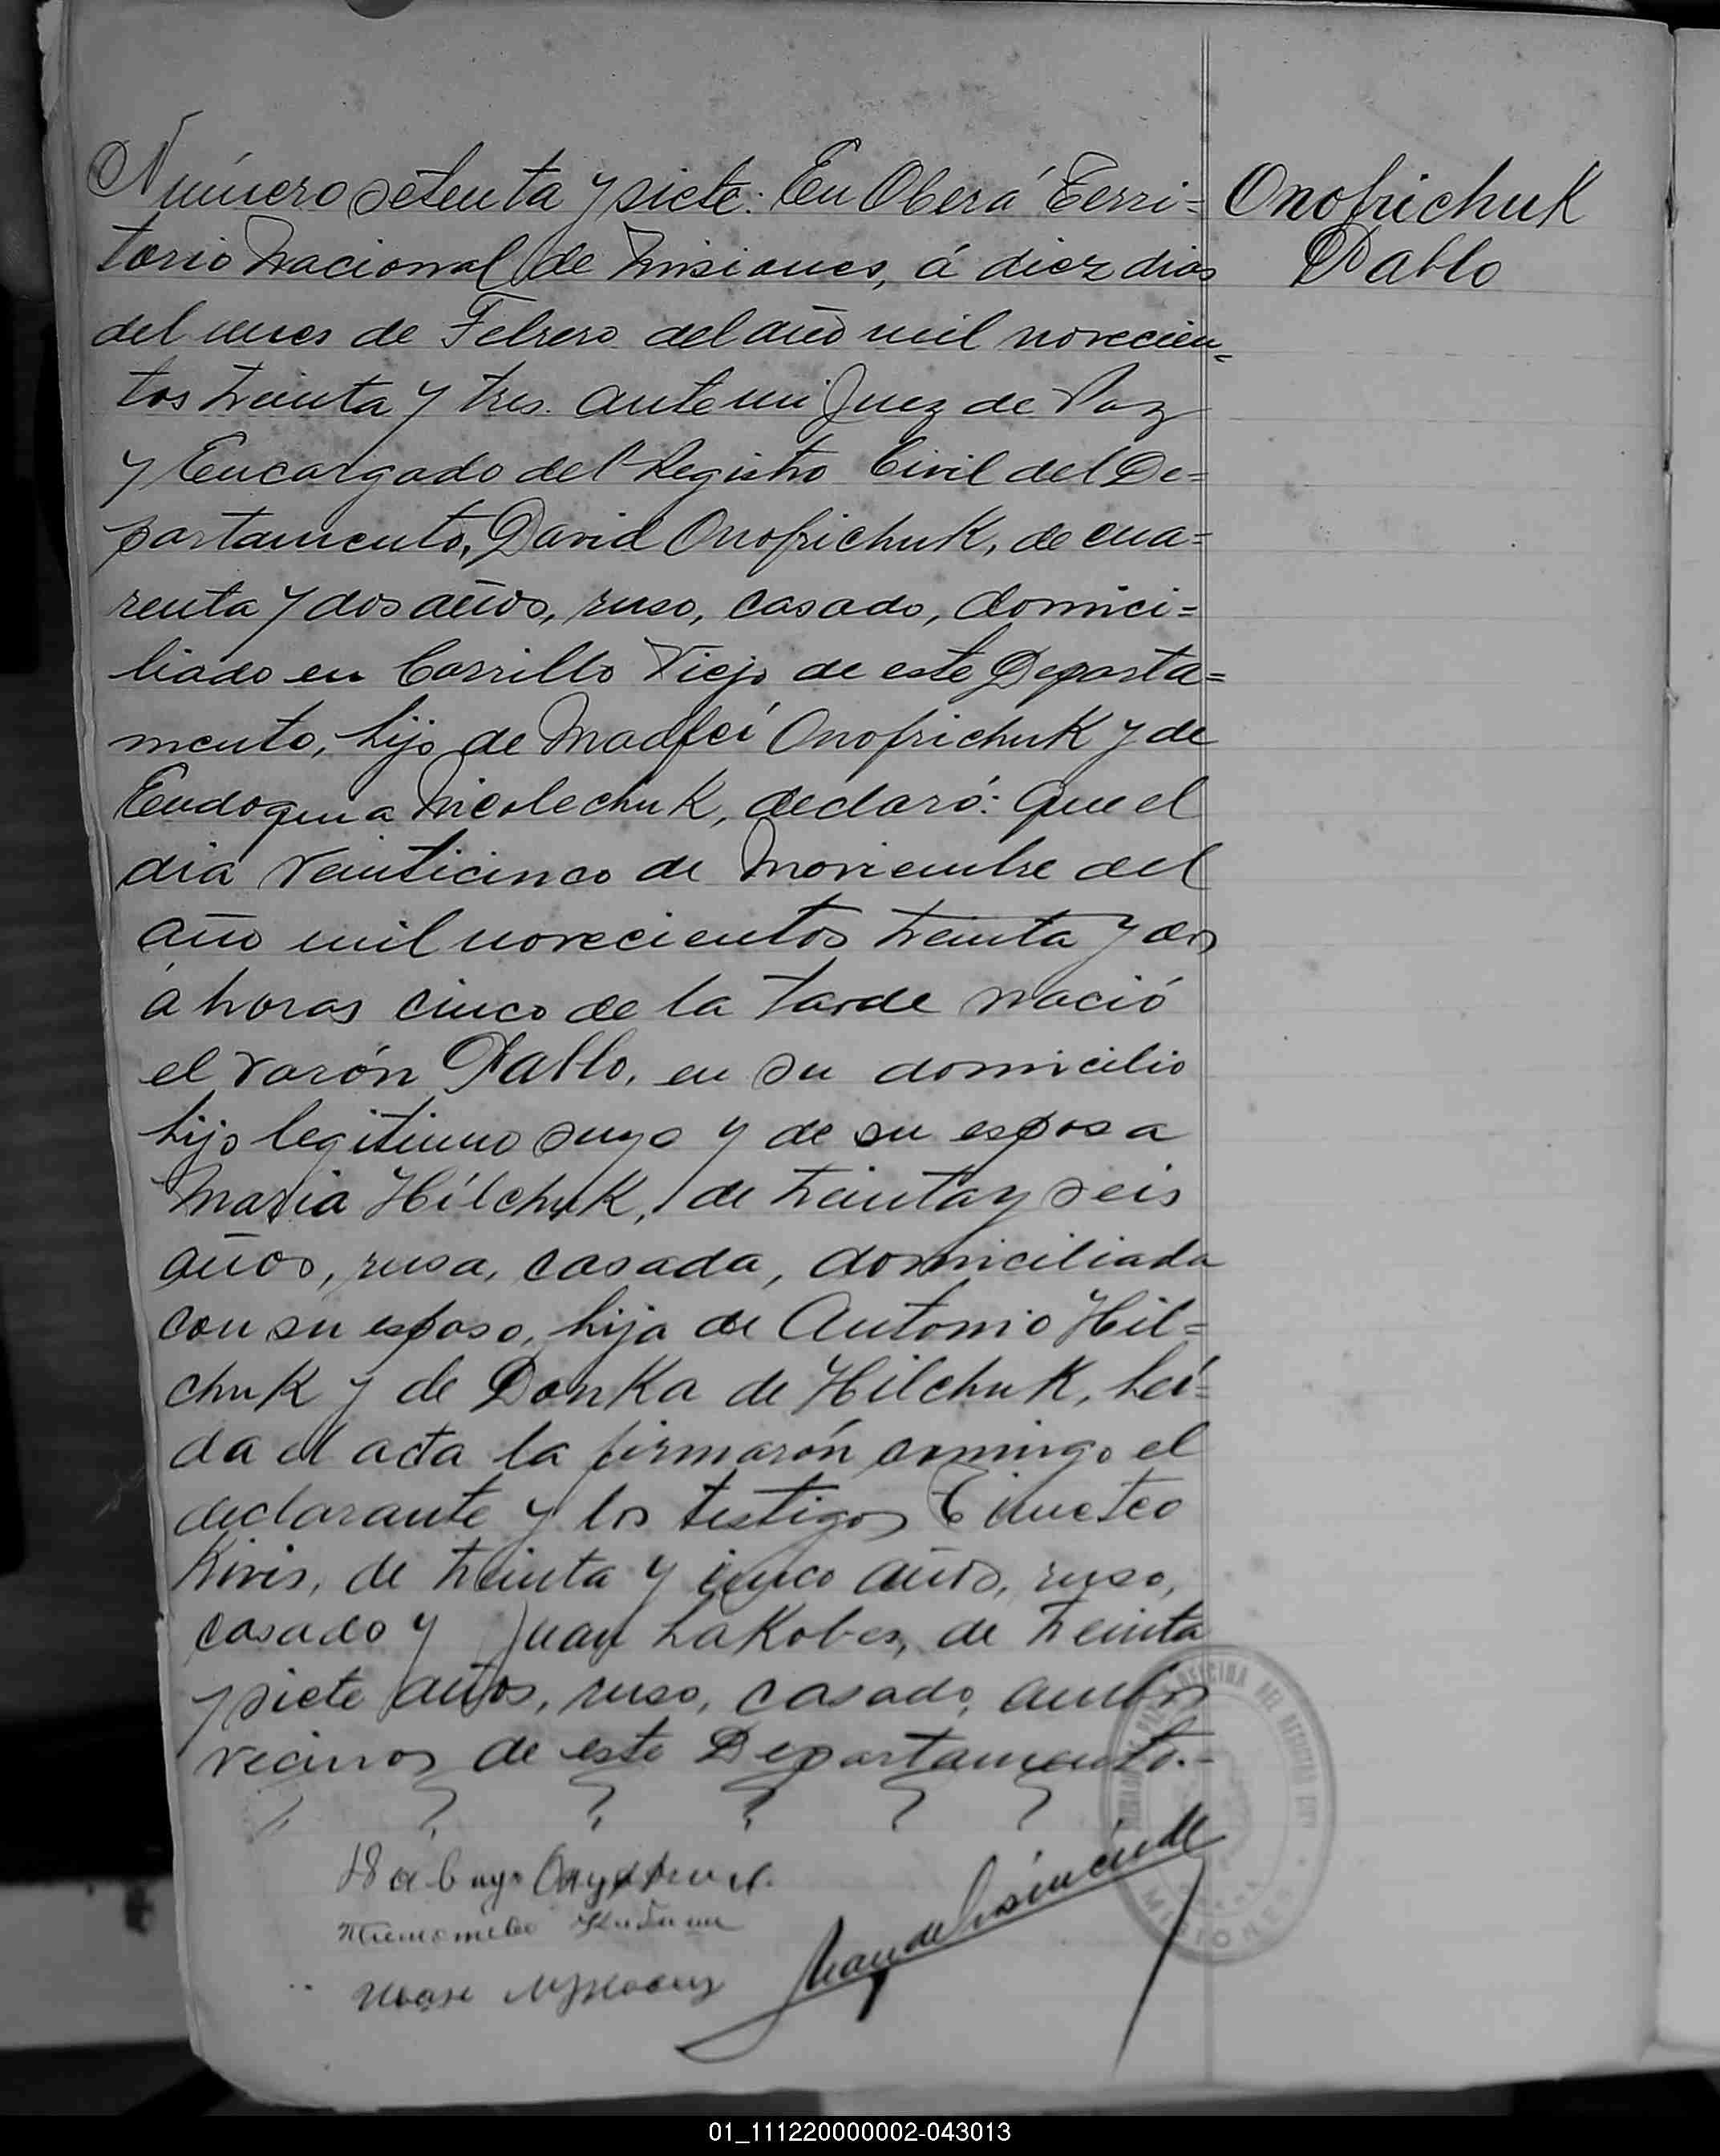 Número setenta y siete: En Oberá Terri=
torio Nacional de Misiones, á diez dias
del mes de Febrero del año mil novecien=
tos treinta y tres. ante mi Juez de Paz
y Encargado del Registro Civil del De=
partamento, David Onofrichuk, de cua=
renta y dos años, ruso, casado, domici=
liado en Cerrillo Viejo de este Departa=
mento, hijo de Madfei Onofrichuk y de
Eudoquia Nicolechuk, declaró: Que el
dia veinticinco de Noviembre del
año mil novecientos treinta y dos
á horas cinco de la tarde nació
el varón Pablo, en su domicilio
hijo legitimo suyo y de su esposa
Maria Hilchuk, de treinta y seis
años, rusa, casada, domiciliada
con su esposo, hija de Antonio Hil=
chuk y de Donka de Hilchuk, leí=
da el acta la firmarón conmigo el
declarante y los testigos Timoteo
Kivis, de treinta y cinco años, ruso,
casado y Juan Lakobes, de treinta
y siete años, ruso, casado, ambos
vecinos de este Departamento.-
Onofrichuk
Pablo
OFICINA DEL REGISTRO CIVIL
MISIONES
01_111220000002-043013